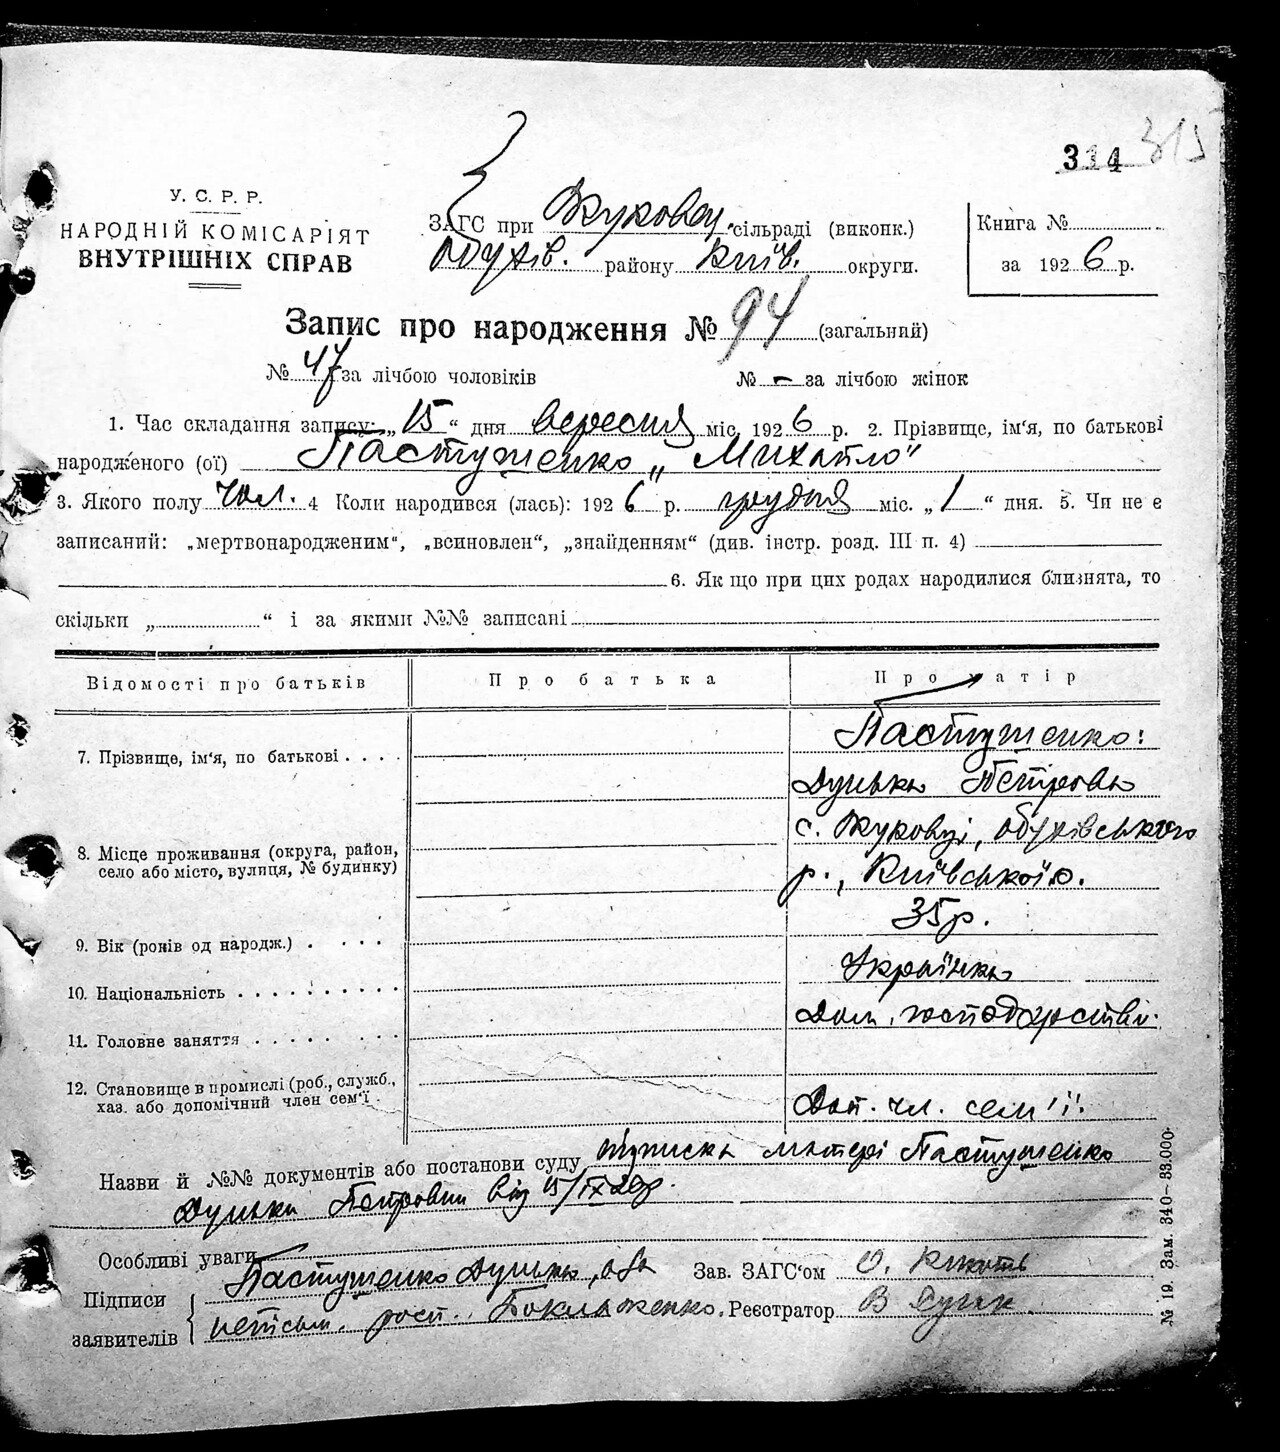 314 315
У. С. Р. Р.
НАРОДНІЙ КОМІСАРІЯТ
ВНУТРІШНІХ СПРАВ
ЗАГС при Жуковец. сільраді (викопк.)
Обухів. району Київ. округи.
Книга №
за 1926 р.
Запис про народження № 94 (загальний)
№ 47 за лічбою чоловіків № – за лічбою жінок
1. Час складання запису: „15“ дня вересня міс. 1926 р. 2. Прізвище, ім'я, по батькові
народженого (ої) Пастушенко „Михайло“
3. Якого полу чол. 4 Коли народився (лась): 1926 р. грудня міс. „1“ дня. 5. Чи не є
записаний: „мертвонародженим“, „всиновлен“, „знайденням“ (див. інстр. розд. III п. 4)
6. Як що при цих родах народилися близнята, то
скільки „ “ і за якими №№ записані
Відомості про батьків Про батька Про матір
7. Прізвище, ім'я, по батькові Пастушенко:
Дунька Петровa
с. Жуковці, Обухівського
8. Місце проживання (округа, район,
село або місто, вулиця, № будинку) р., Київської о.
9. Вік (ронів од народж.) 35 р.
10. Національність Українка
11. Головне заняття Дом. господарстві.
12. Становище в промислі (роб., служб.,
хаз. або допомічний член сем'ї Доп. чл. сем'ї.
Назви й №№ документів або постанови суду підписка матері Пастушенко
Дуньки Петровни від 15/IX 26р.
Особливі уваги
Підписи
заявителів
Пастушенко Дунька, а за
неписьм. росп.
Зав. ЗАГС'ом О.
Реєстратор В
№ 19. Зам. 340—33.000.